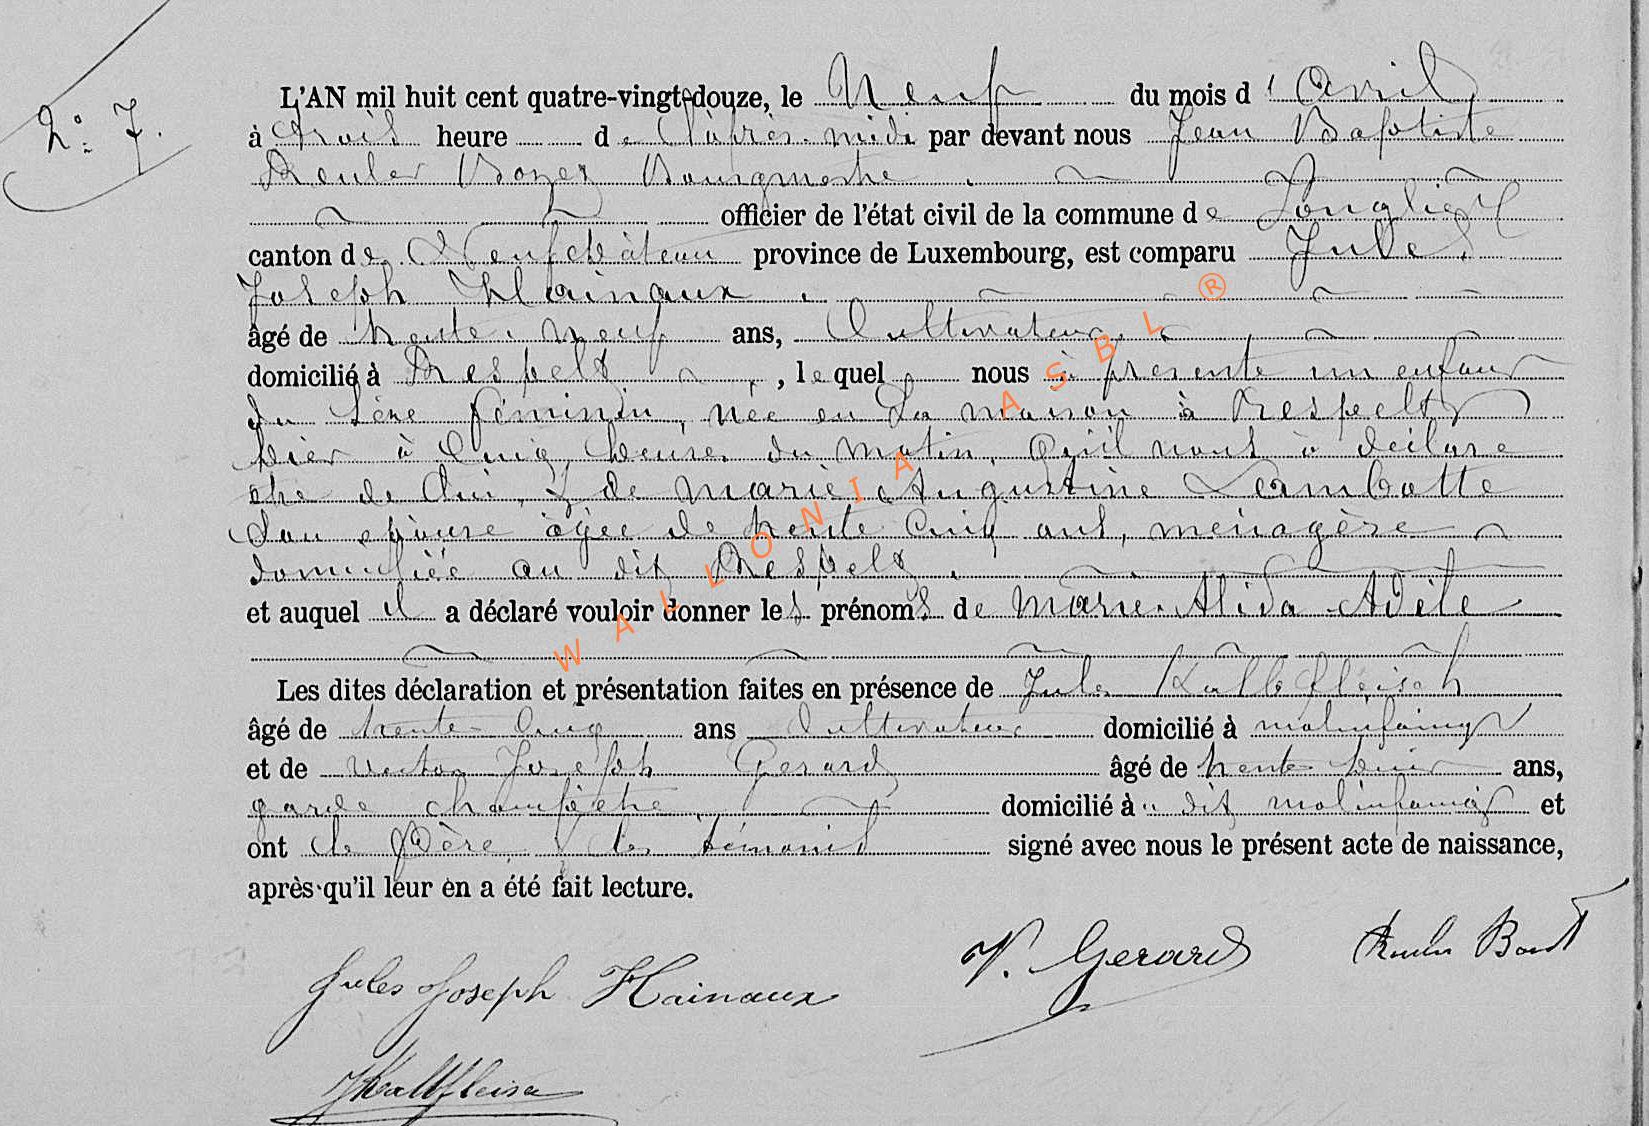 L'AN mil huit cent quatre-vingt-douze, le Neuf du mois d'Avril
N° 7.
à trois heure de l'après-midi par devant nous Jean Baptiste
Bourgmestre
officier de l'état civil de la commune de Longlier
canton de Neufchâteau province de Luxembourg, est comparu Jules
Joseph Hainaux
âgé de trente-neuf ans, Cultivateur
domicilié à Respelt, lequel nous à présenté un enfant
du sexe féminin, née en sa maison à Respelt
hier à Cinq heures du matin, qu'il nous à déclaré
être de lui, & de Marie Augustine Lambotte
son épouse âgée de trente cinq ans, ménagère
domiciliée au dit Respelt
et auquel il a déclaré vouloir donner les prénoms de Marie Alida Adèle
Les dites déclaration et présentation faites en présence de Jules Kalbfleisch
âgé de trente cinq ans Cultivateur domicilié à molinfaing
et de Victor Joseph Gerard âgé de trente huit ans,
garde champêtre domicilié à dit molinfaing et
ont le Père, & les témoins signé avec nous le présent acte de naissance,
après qu'il leur en a été fait lecture.
V. Gerard
Jules Joseph Hainaux
W A L L O N I A A S B L ®